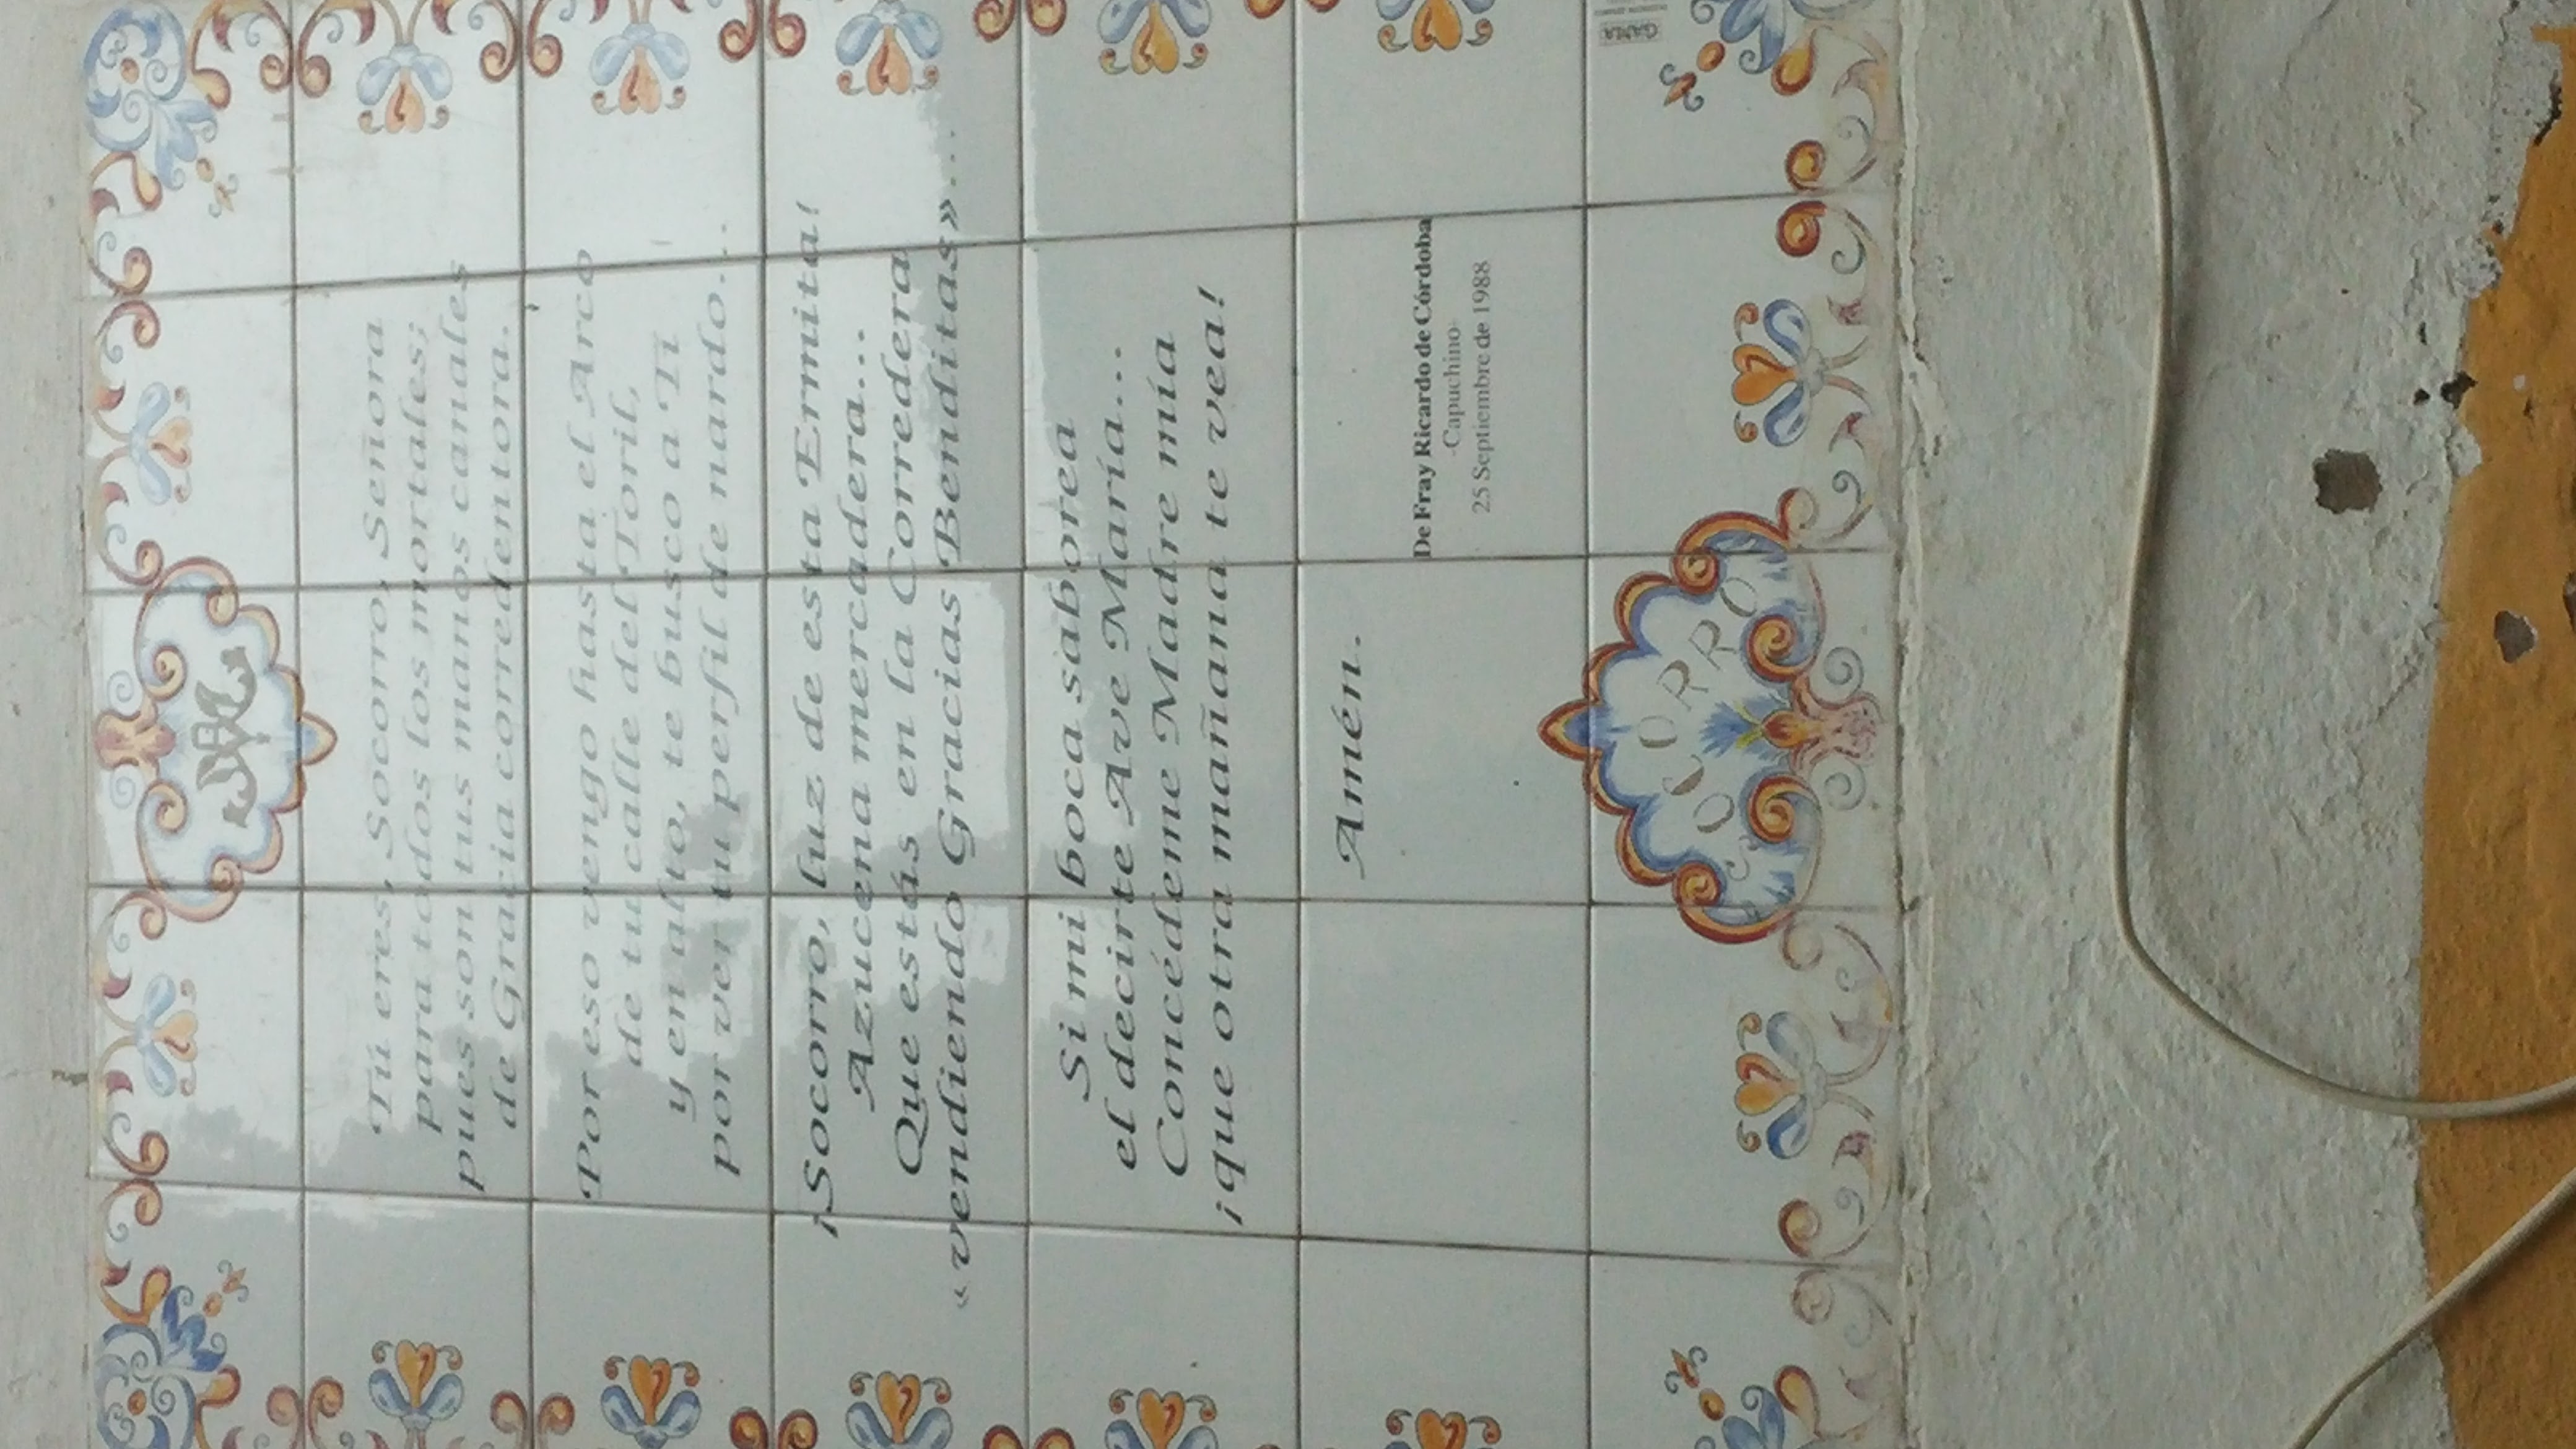 Tú eres, Socorro, Señora
para todos los mortales;
pues son tus manos canales
de Gracia corredentora.
Por eso vengo hasta el Arco
de tu calle del Toril,
y en alto, te busco a Ti
por ver tu perfil de nardo...
¡Socorro, luz de esta Ermita!
Azucena mercadera...
Que estás en la Corredera
«vendiendo Gracias Benditas»...
Si mi boca saborea
el decirte Ave María...
Concédeme Madre mía
¡que otra mañana te vea!
Amén.
De Fray Ricardo de Córdoba
-Capuchino-
25 Septiembre de 1988
SOCORRO